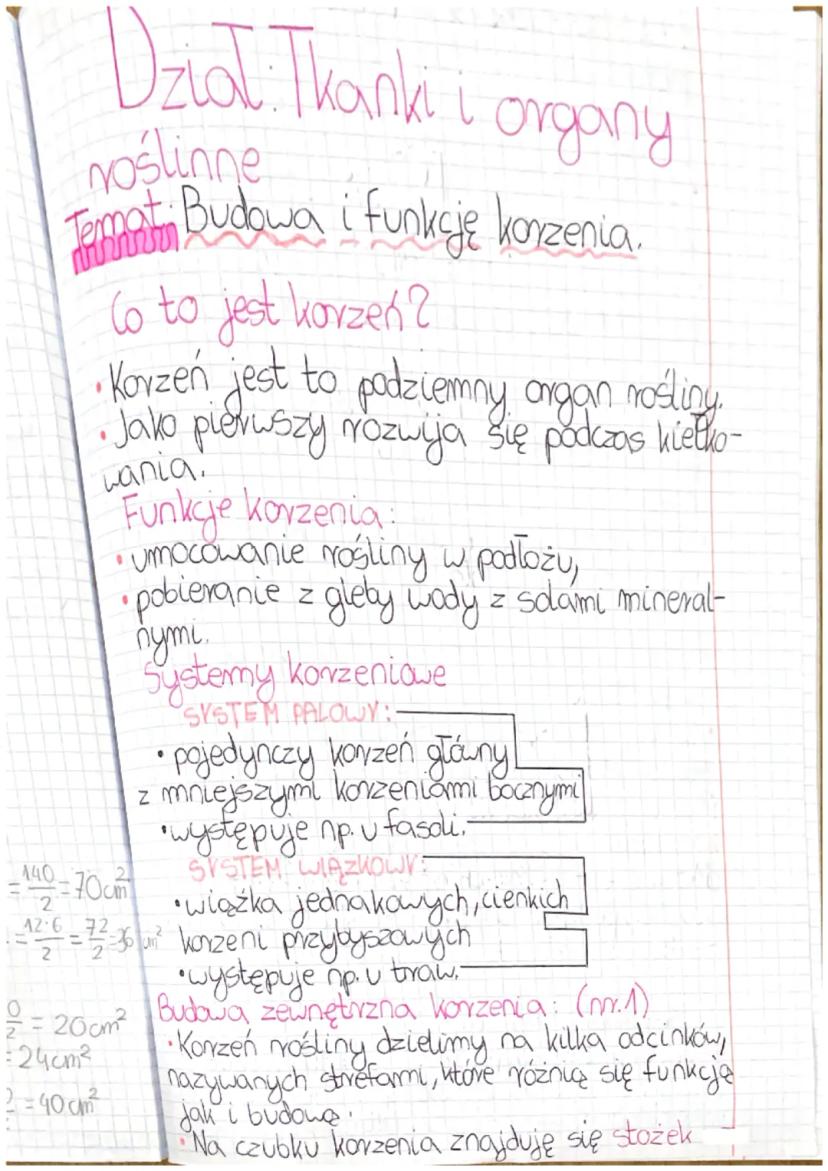 Dział: Tkanki i organy
roślinne
Temat: Budowa i funkcję korzenia.
Co to jest korzeń?
• Korzeń jest to podziemny organ rośliny.
• Jako pierwszy rozwija się podczas kiełko-
wania.
Funkcje korzenia:
• umocowanie rośliny w podłożu,
• pobieranie z gleby wody z solami mineral-
nymi.
Systemy korzeniowe
SYSTEM PALOWY:
• pojedynczy korzeń główny
z mniejszymi korzeniami bocznymi
• występuje np. u fasoli.
SYSTEM WIĄZKOWY:
• wiązka jednakowych, cienkich
korzeni przybyszowych
• występuje np. u traw.
Budowa zewnętrzna korzenia: (nr.1)
• Korzeń rośliny dzielimy na kilka odcinków,
nazywanych strefami, które różnią się funkcją
jak i budową.
• Na czubku korzenia znajduję się stożek
= 140/2 = 70cm²
= 12·6/2 = 72/2 = 36 cm²
= 20cm²
= 24cm²
= 40cm²